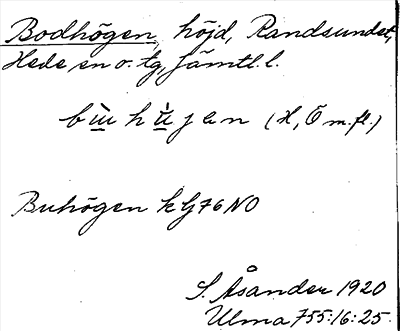 Bodhögen, höjd, Randsundet,
Hede sn o. tg, Jämtl. l.
(H, Ö m. fl.)
Buhögen kG76NO
S. Åsander 1920
Ulma 755:16:25.